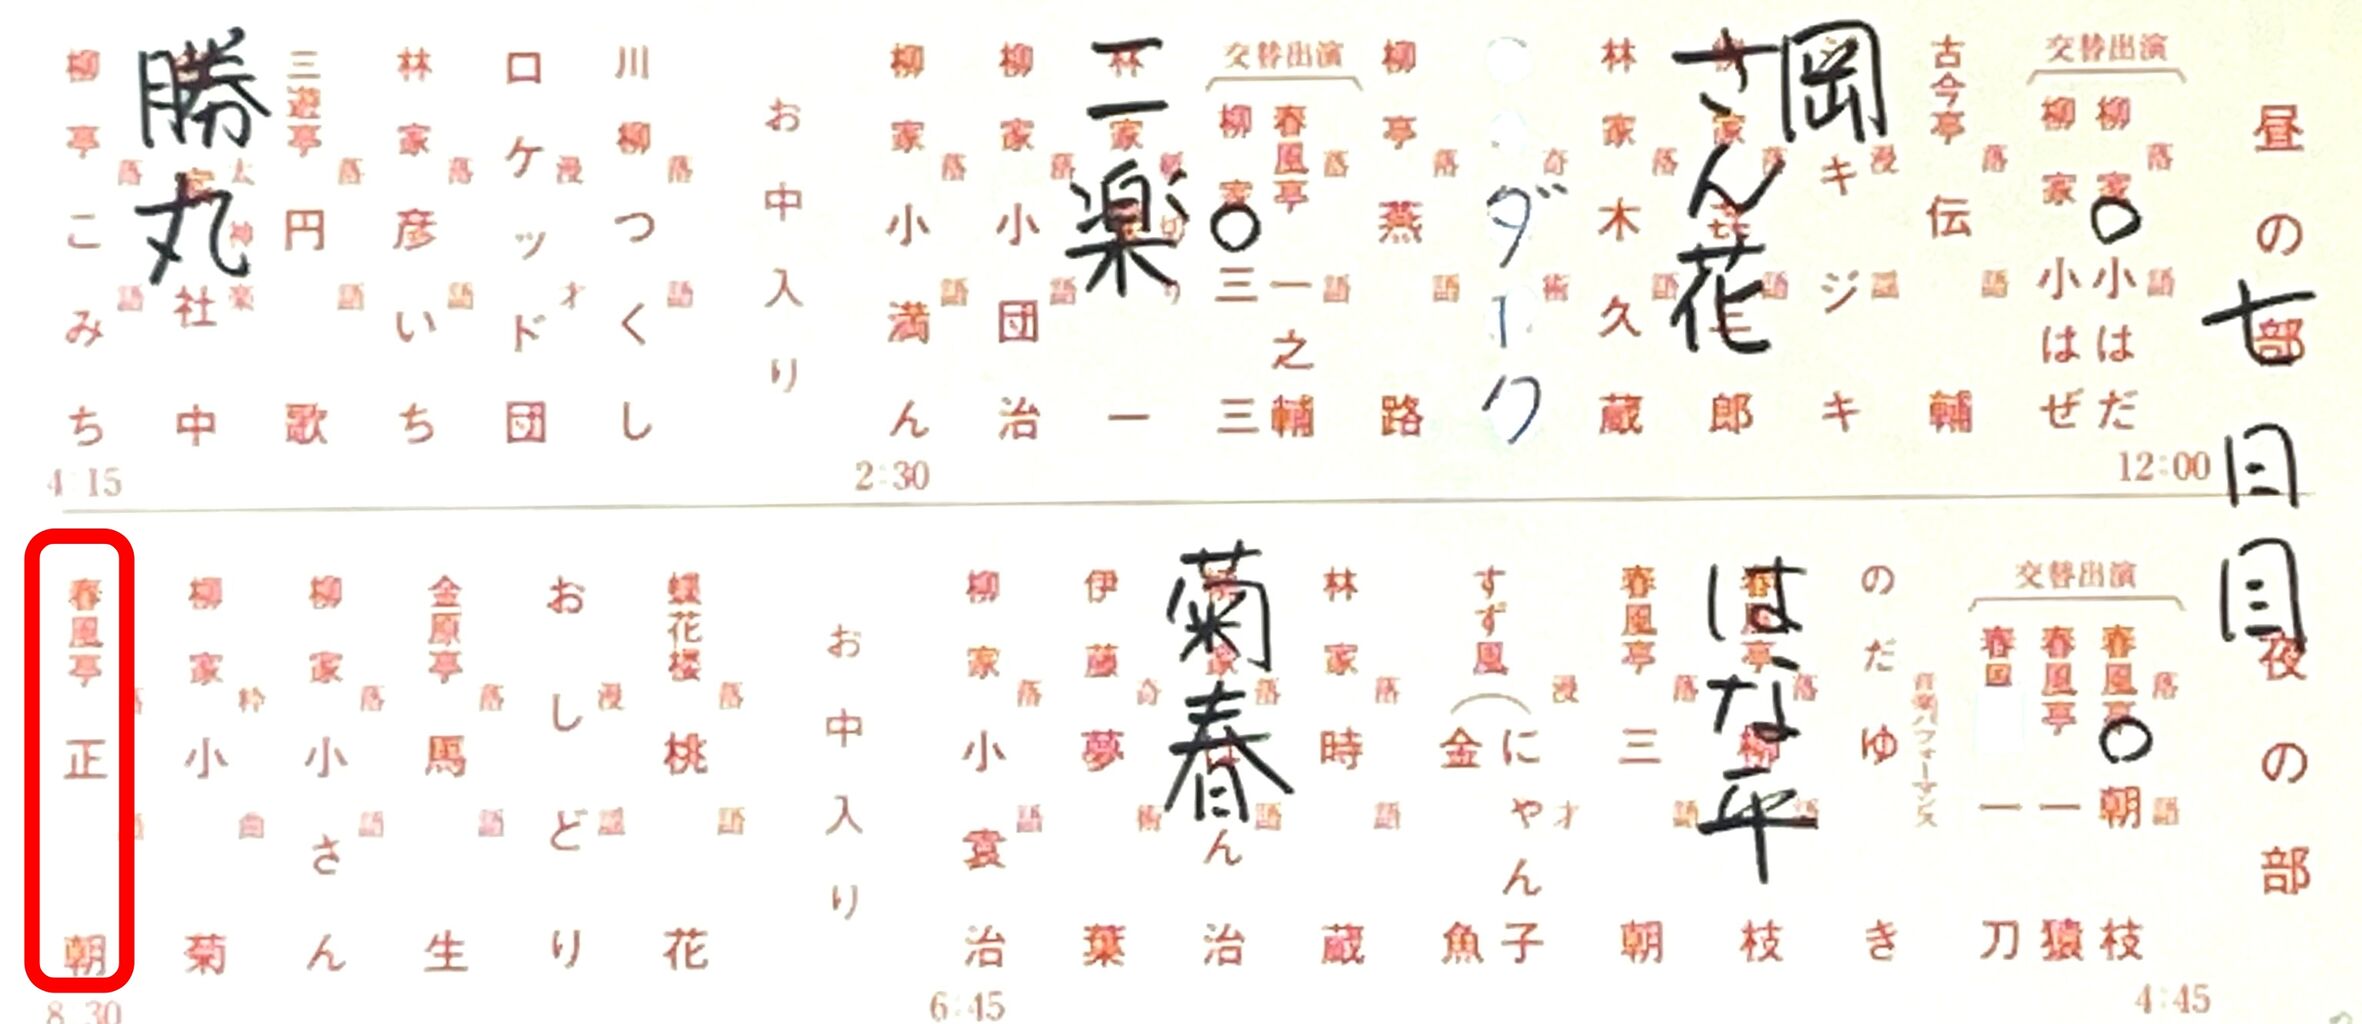 昼の部
七日目
交替出演
落語
柳家○小はだ
柳家小はぜ
12:00
落語
古今亭伝輔
漫謡
岡
キジキ
落語
さん花
郎
落語
林家木久蔵
奇術
ダーク
落語
柳亭燕路
交替出演
落語
春風亭一之輔
柳家○三三
紙切り
二楽
林家一
落語
柳家小団治
落語
柳家小満ん
2:30
お中入り
落語
川柳つくし
漫才
ロケット団
落語
林家彦いち
落語
三遊亭円歌
太神楽
勝丸
社中
落語
柳亭こみち
4:15
夜の部
交替出演
落語
春風亭○朝枝
春風亭一猿
春風一刀
4:45
音楽パフォーマンス
のだゆき
落語
はな平
春風亭柳枝
落語
春風亭三朝
漫才
すず風
にゃん子
金魚
落語
林家時蔵
落語
菊春
家ん治
奇術
伊藤夢葉
落語
柳家小袁治
6:45
お中入り
落語
蝶花楼桃花
漫謡
おしどり
落語
金原亭馬生
落語
柳家小さん
粋曲
柳家小菊
落語
春風亭正朝
8:30